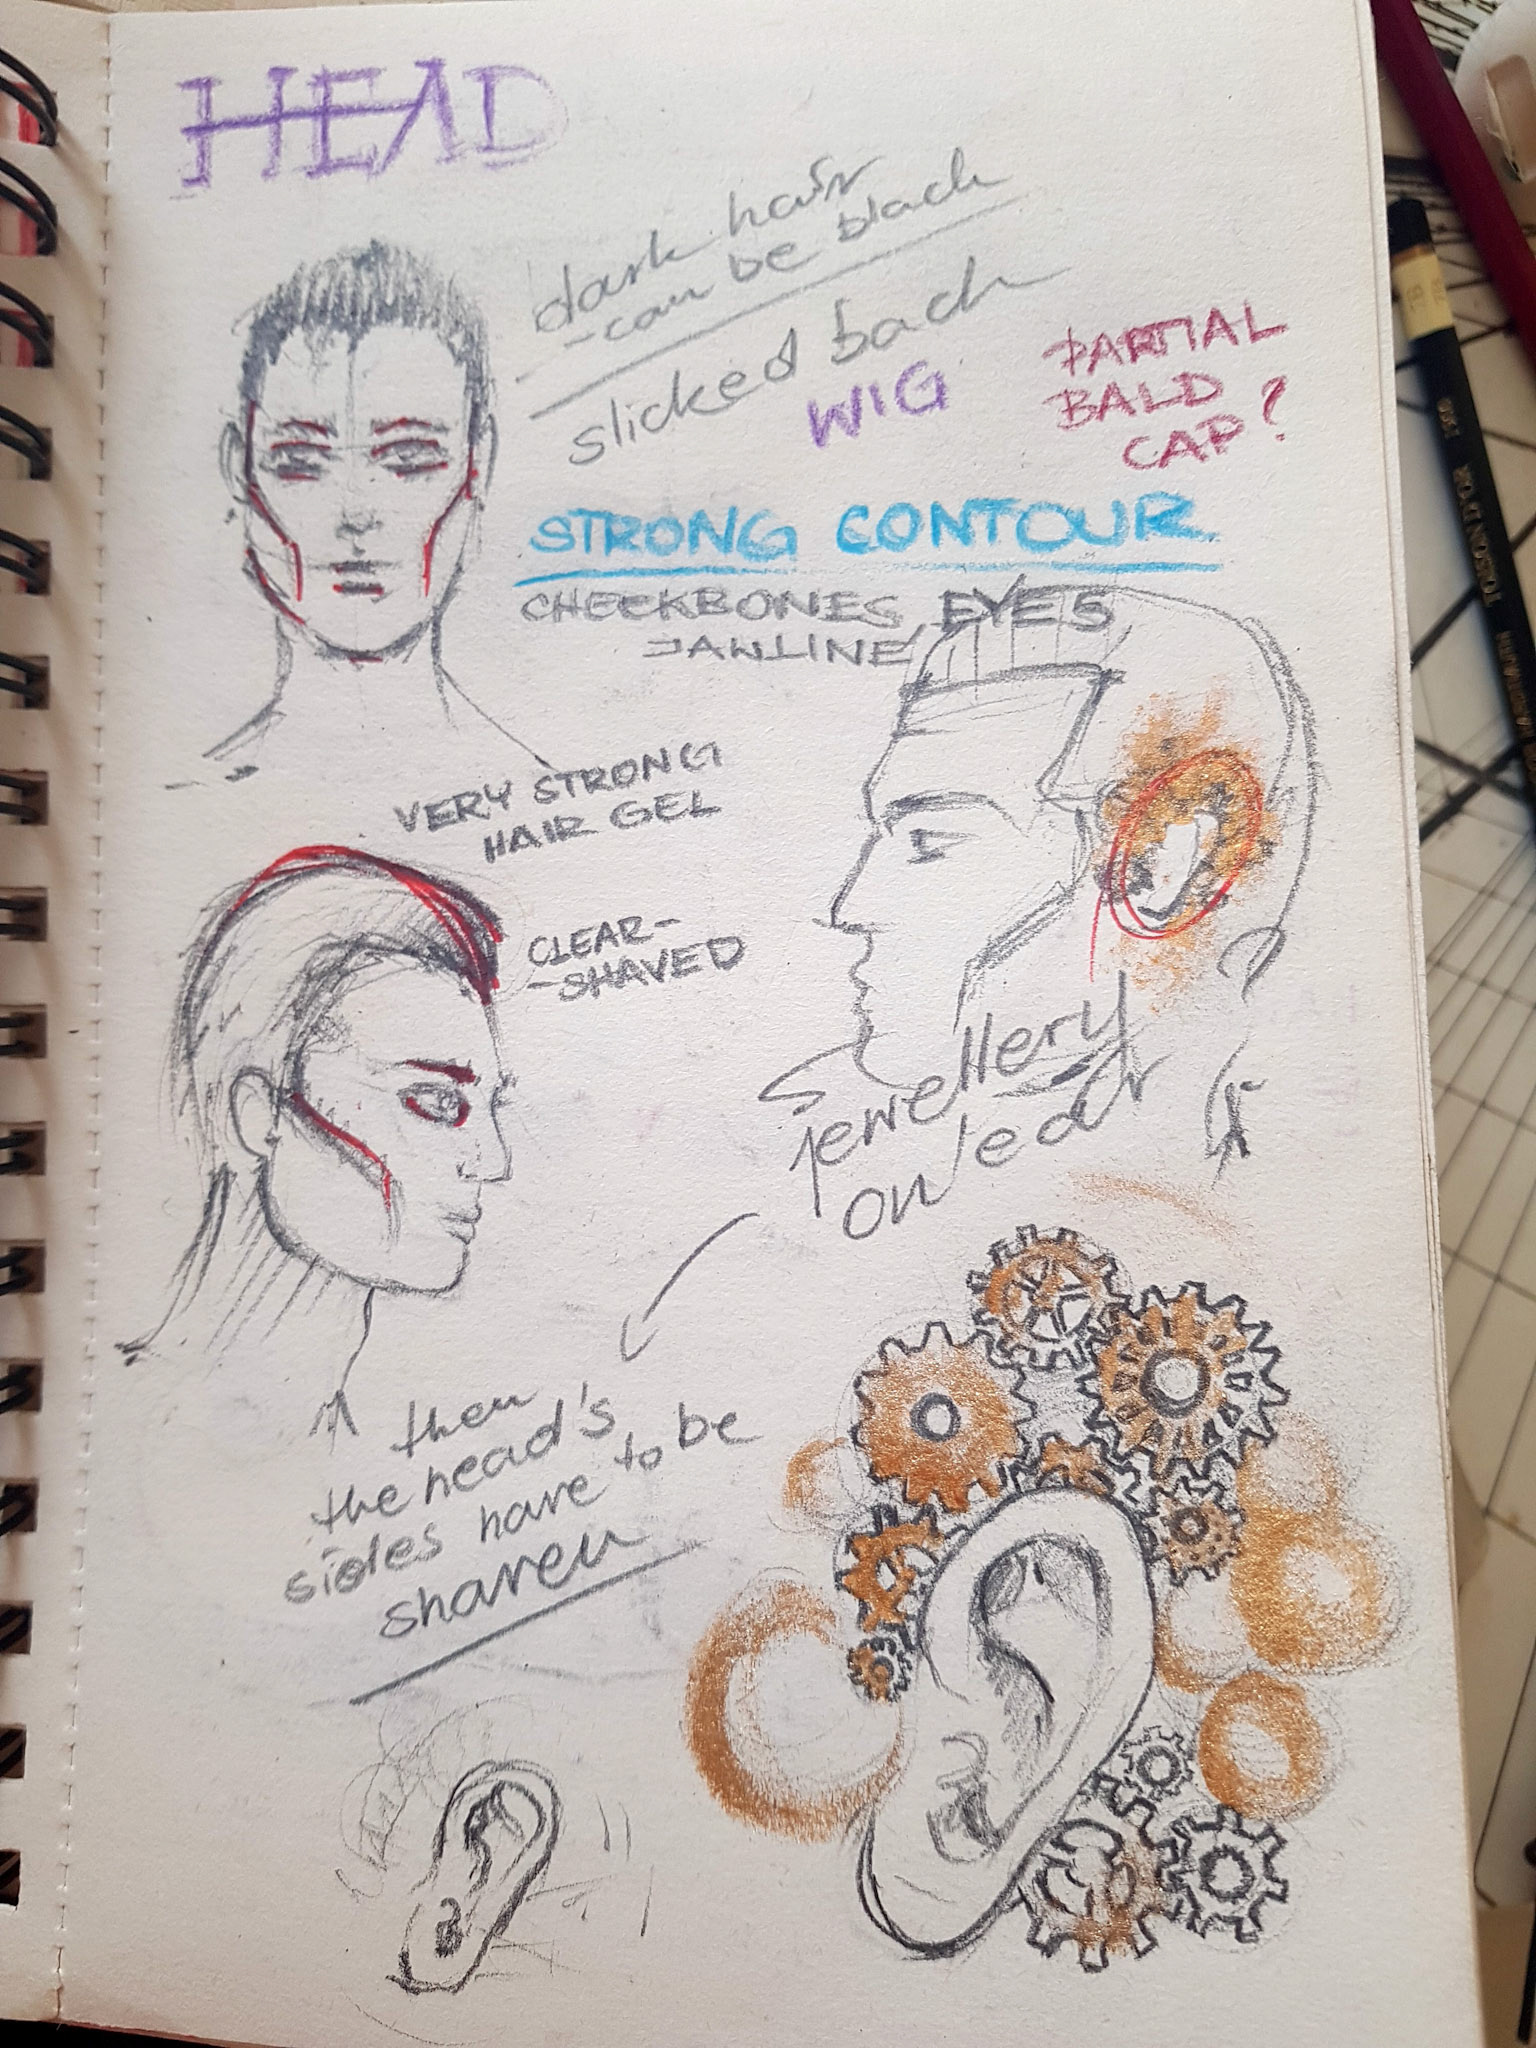 HEAD
dark hair
- can be black
slicked back
WIG
PARTIAL
BALD
CAP?
STRONG CONTOUR
CHEEKBONES, EYES
JAWLINE
VERY STRONG
HAIR GEL
CLEAR-
-SHAVED
jewellery
on ear
then
the head's
sides have to be
shaven
TOISON D'OR